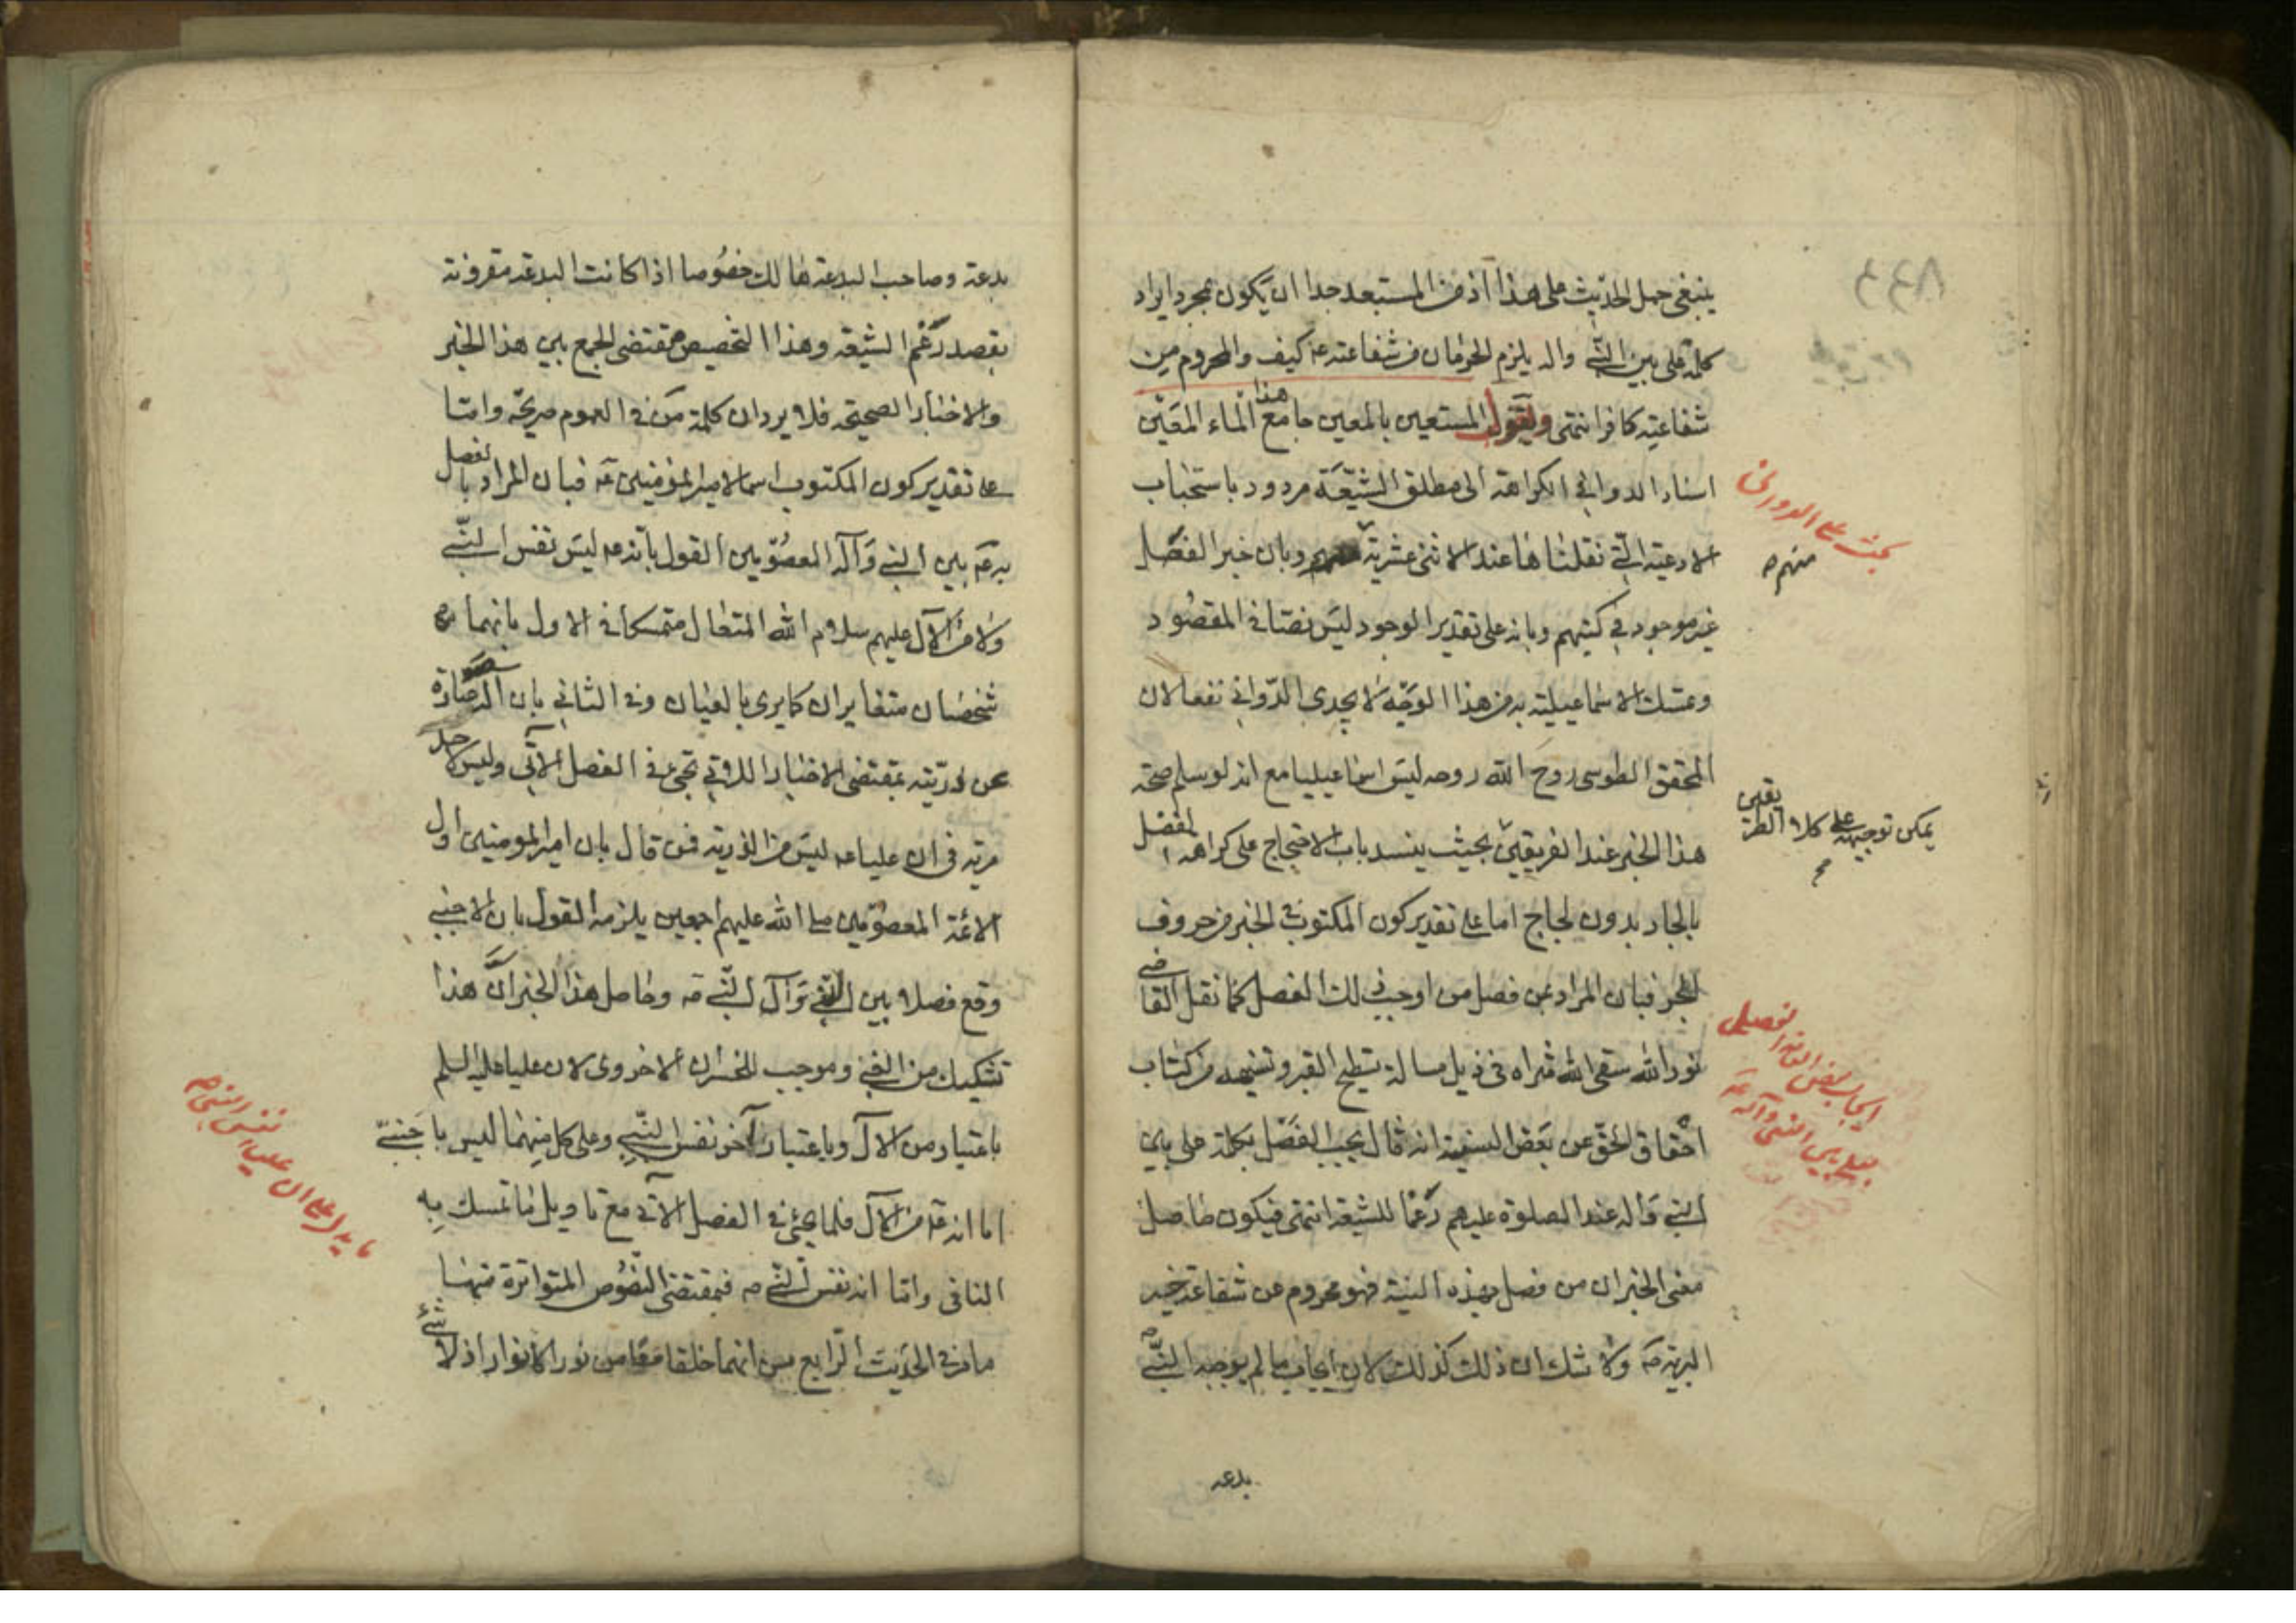 ينبغى حمل الحديث على هذا اذ من المستبعد جدا ان يكون مجرد ايراد
كلمة على بين النبى واله يلزم الحرمان من شفاعته ع كيف والمحروم من
شفاعته كافر انتهى ويقول المستعين بالمعين جامع هذا الماء المعين
اسناد الدوانى الكراهة الى مطلق الشيعة مردود باستحباب
الادعية التى نقلناها عند الاثنى عشرية وبان خبر الفصل
غير موجود فى كتبهم وبانه على تقدير الوجود ليس نصا فى المقصود
وتمسك الاسماعيلية به من هذا الوجه لا يجدى الدوانى نفعا لان
المحقق الطوسى روح الله روحه ليس اسماعيليا مع انه لو سلم صحة
هذا الخبر عند الفريقين بحيث ينسد باب الاحتجاج على كراهة الفصل
بالجار بدون لجاج اما على تقدير كون المكتوب فى الخبر من حروف
الجر فبان المراد بمن فصل من اوجب ذلك الفصل كما نقل القاضى
نور الله سقى الله ثراه فى ذيل مسالة تسطيح القبر وتسنيمه من كتاب
احقاق الحق عن بعض السنية انه قال يجب الفصل بكلمة على بين
النبى واله عند الصلوة عليهم رغما للشيعة انتهى فيكون حاصل
معنى الخبر ان من فصل بهذه النية فهو محروم عن شفاعة خير
البرية ص ولا شك ان ذلك كذلك لان ايجاب ما لم يوجبه النبى ص
بدعه
بحث على الدوانى
منه
يمكن توجيهه على كلا الطريقين
ايجاب بعض العامة الفصل
بعلى بين النبى وآله
بدعة وصاحب البدعة هالك خصوصا اذا كانت البدعة مقرونة
بقصد رغم الشيعة وهذا التخصيص مقتضى الجمع بين هذا الخبر
والاخبار الصحيحة فلا يرد ان كلمة من فى العموم صريحة واما
على تقدير كون المكتوب اسما لامير المؤمنين ع فبان المراد بالفصل
به ع بين النبى وآله المعصومين القول بانه ع ليس نفس النبى
ولا من الآل عليهم سلام الله المتعال متمسكا فى الاول بانهما
شخصان متغايران كما يرى بالعيان وفى الثانى بان الآل عبارة
عن ذريته بمقتضى الاخبار اللاتى تجىء فى الفصل الآتى وليس لاحد
مرية فى ان عليا ع ليس من الذرية فمن قال بان امير المومنين اول
الائمة المعصومين صلى الله عليهم اجمعين يلزمه القول بان الاجنبى
وقع فصلا بين النبى وآل النبى ص وحاصل هذا الخبر ان هذا
تشكيك من الغبى وموجب للخسران الاخروى لان عليا عليه السلم
باعتبار من الآل وباعتبار آخر نفس النبى وعلى كل منهما ليس باجنبى
اما انه ع من الآل فلما يجئ فى الفصل الآتى مع تاويل ما تمسك به
النافى واما انه نفس النبى ص فبمقتضى النصوص المتواترة منها
ما مر فى الحديث الرابع من انهما خلقا معا من نور الانوار اذ لا شئ
ما يدل على ان عليا نفس النبى ص